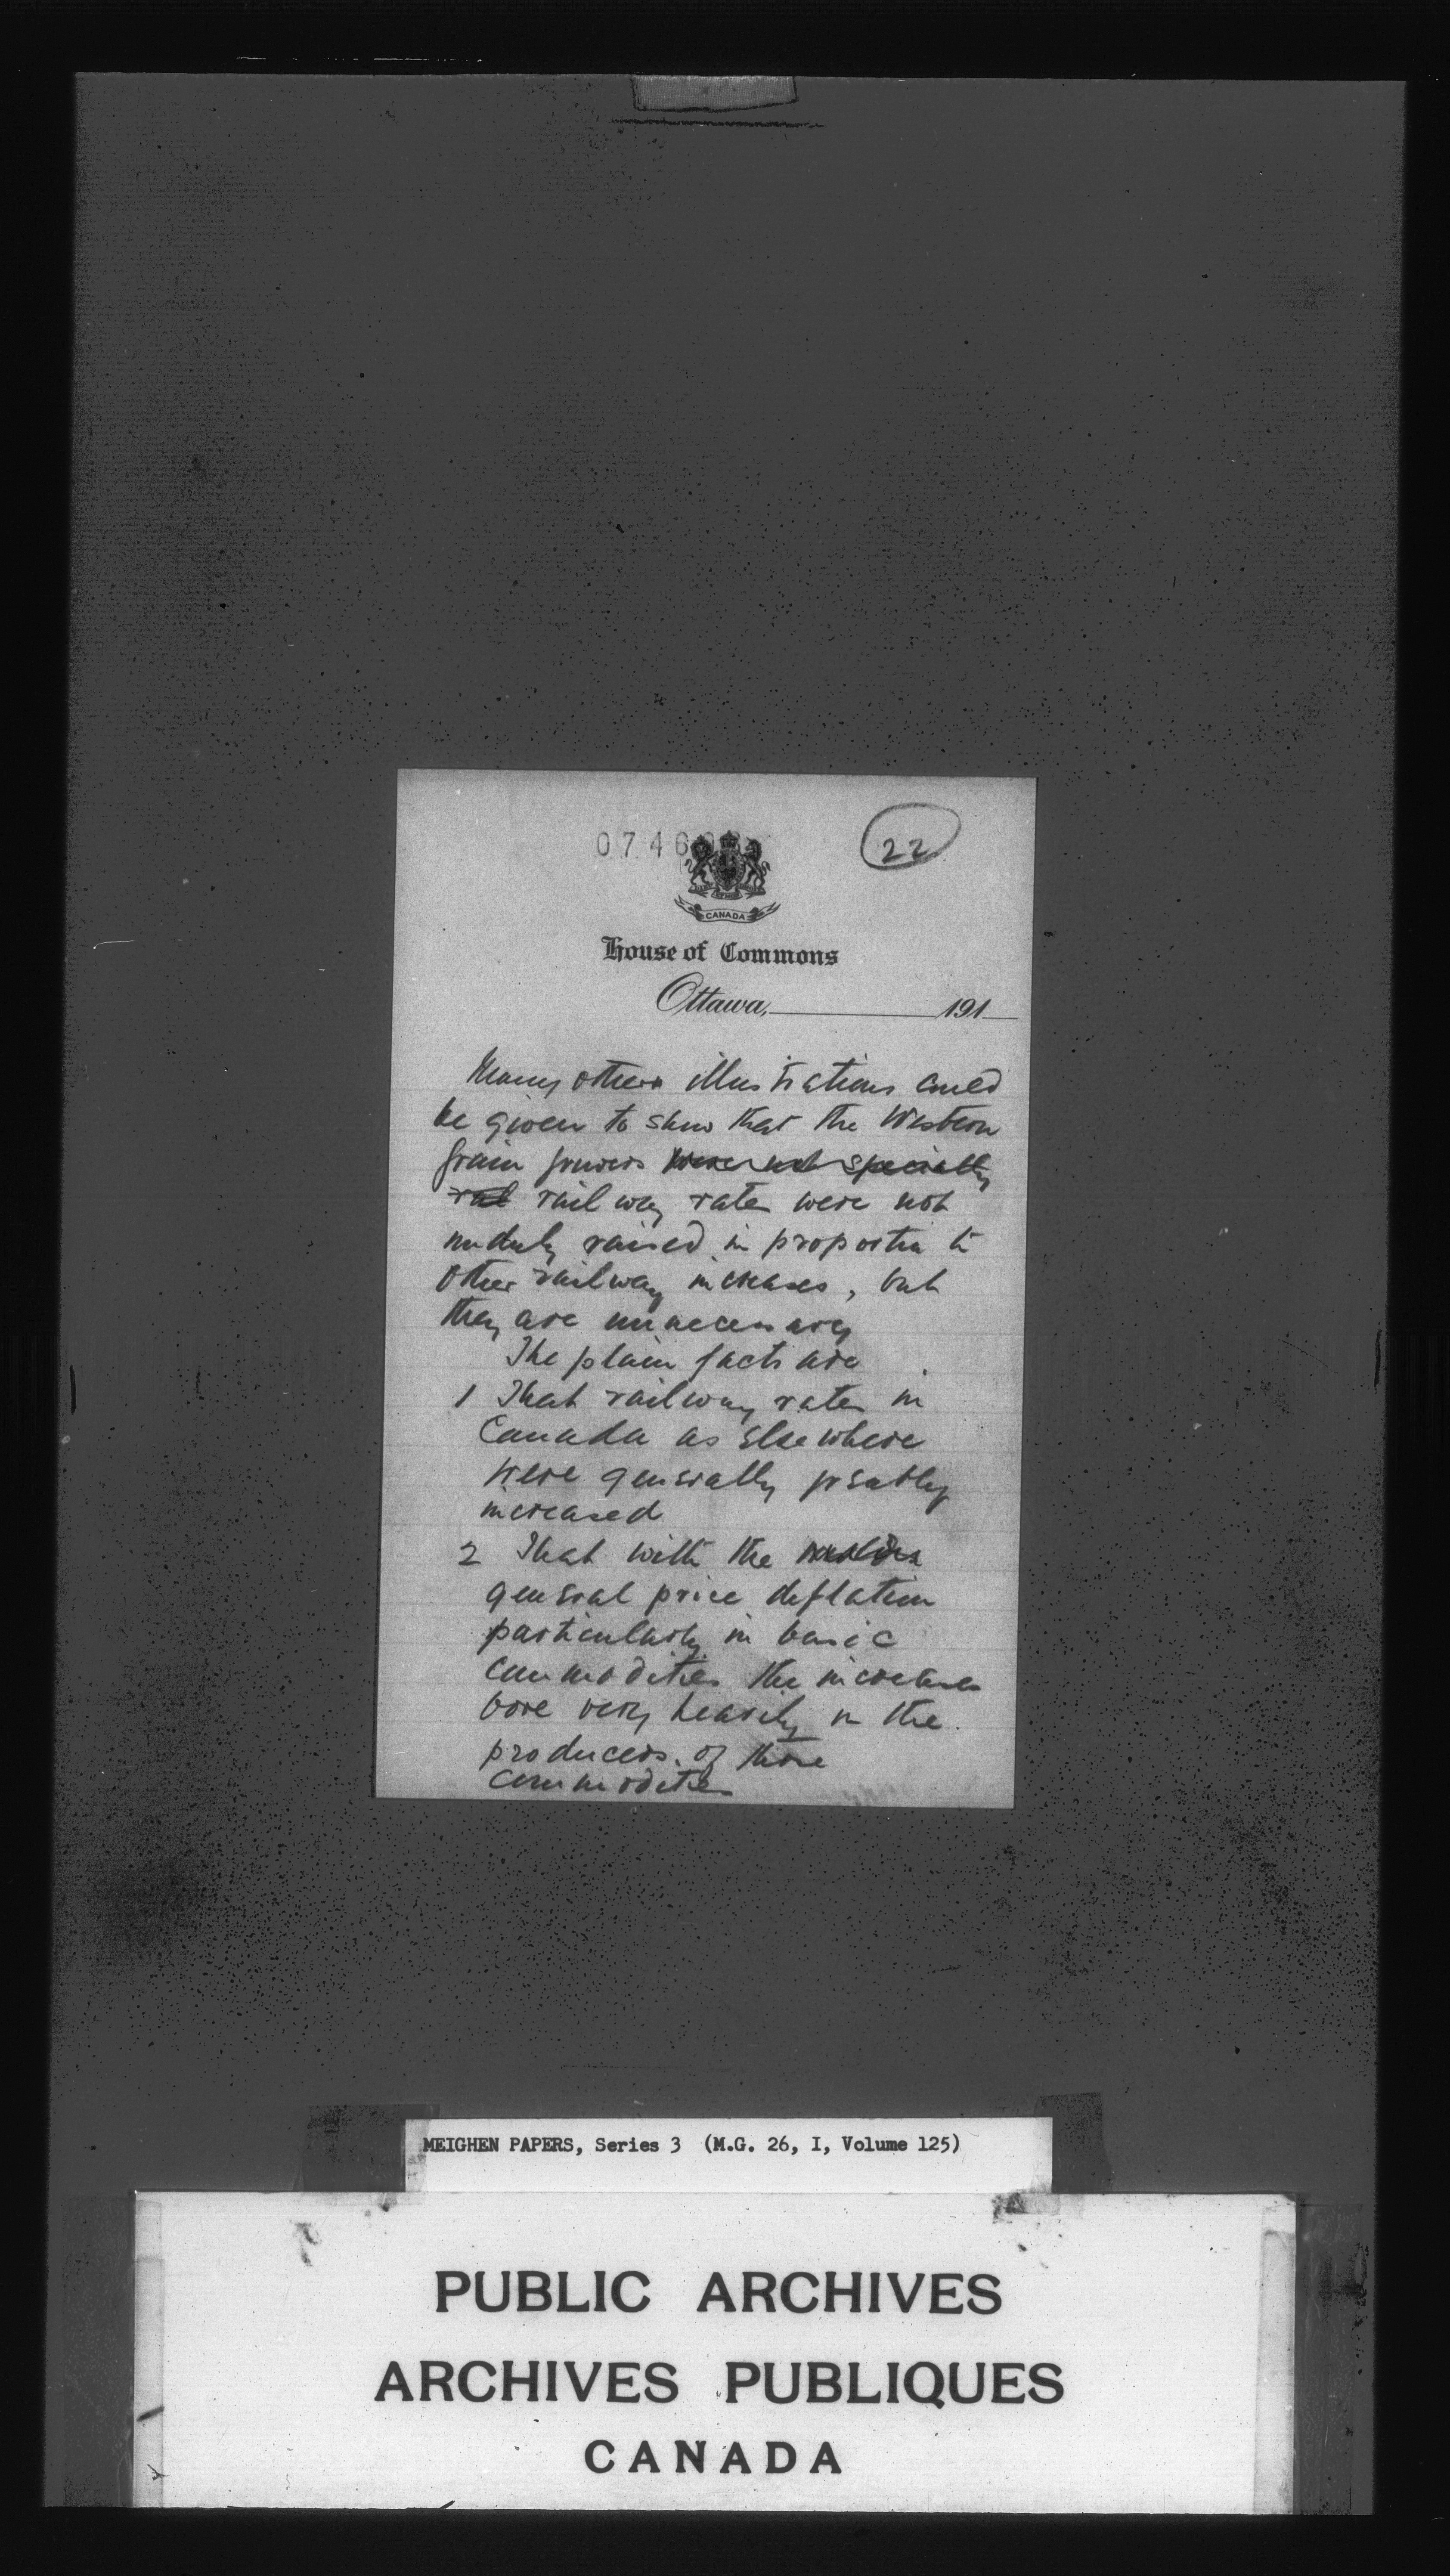 22
CANADA
House of Commons
Ottawa, 191
Many others illustrations could
be given to show that the Western
grain growers were not specially
rat railway rates were not
unduly raised in proportion to
other railway increases, but
they are unnecessary
The plain facts are
1 That railway rates in
Canada as elsewhere
were generally greatly
increased
2 That with the
general price deflation
particularly in basic
commodities the increases
bore very heavily on the
producers of those
commodities
MEIGHEN PAPERS, Series 3 (M.G. 26, I, Volume 125)
PUBLIC ARCHIVES
ARCHIVES PUBLIQUES
CANADA